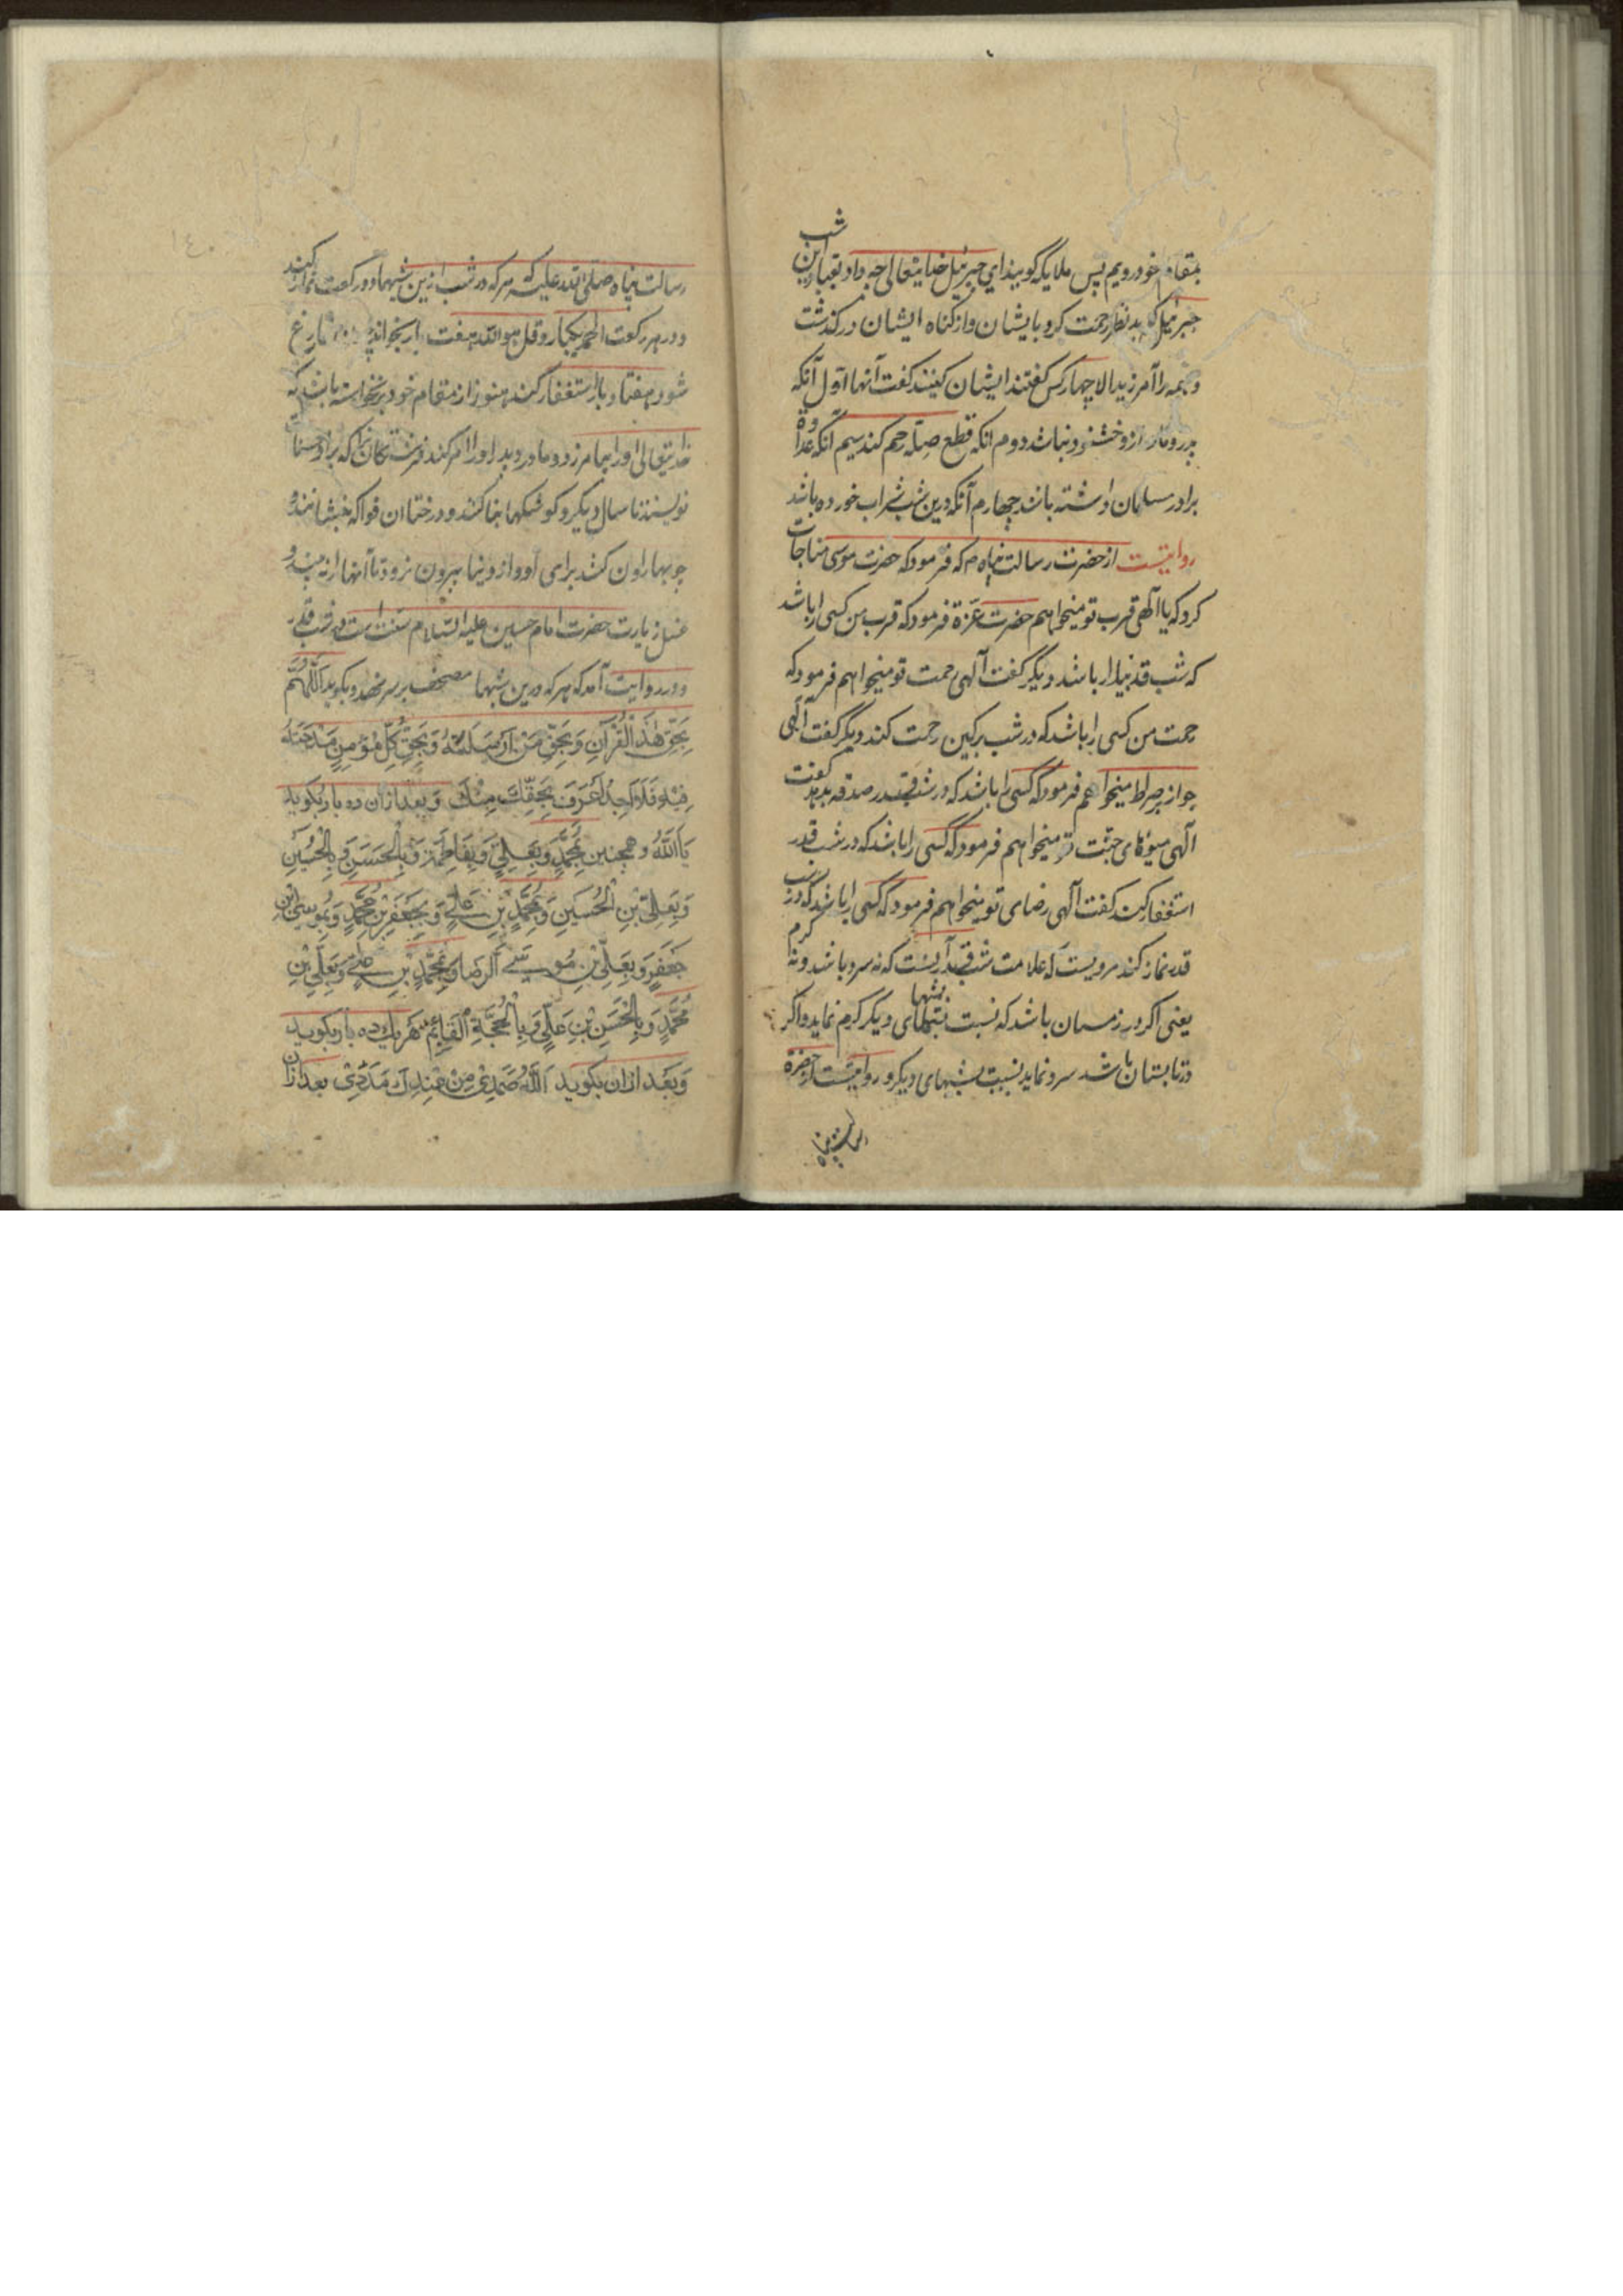 بمقام خود رویم پس ملایکه گویند ای جبرئیل خدایتعالی چه داد بعباد این شب
جبرئیل گوید نظر رحمت کرد بایشان و از گناه ایشان در گذشت
و همه را آمرزید الا چهار کس گفتند ایشان کیند گفت آنها اول آنکه
پدر و مادر ازو خشنود نباشد دوم آنکه قطع صله رحم کند سیم آنکه عداوة
برادر مسلمان داشته باشد چهارم آنکه درین شب شراب خورده باشد
روایتست از حضرت رسالت پناه م که فرمود که حضرت موسی مناجات
کرد که یا الهی قرب تو میخواهم حضرت عزة فرمود که قرب من کسی را باشد
که شب قدر بیدار باشد دیگر گفت آلهی رحمت تو میخواهم فرمود که
رحمت من کسی را باشد که در شب بر کین رحمت کند دیگر گفت آلهی
جواز صراط میخواهم فرمود که کسی را باشد که در شب قدر صدقه بدهد گفت
آلهی میوهای جنت تو میخواهم فرمود که کسی را باشد که در شب قدر
استغفار کند گفت آلهی رضای تو میخواهم فرمود که کسی را باشد که در شب
قدر نماز کند مرویست که علامت شب قدر آنست که نه سرد باشد و نه گرم
یعنی اگر در زمستان باشد که نسبت بشبهای دیگر گرم نماید و اگر
در تابستان باشد سرد نماید نسبت بشبهای دیگر و روایتست از حضرة
رسالت پناه
رسالت پناه صلی الله علیه که هر که در شب ازین شبها دو رکعت نماز کند
و در هر رکعت الحمد یکبار و قل هو الله هفت بار بخواند چون فارغ
شود هفتاد بار استغفار کند هنوز از مقام خود برنخواسته باشد که
خدایتعالی او را بیامرزد و مادر و پدر او را امر کند فرشتگان را که برای او حسنات
نویسند تا سال دیگر و کوشکها بنا کنند و درختان فواکه بنشانند و
جویها روان کنند برای او و از دنیا بیرون نرود تا آنها را نبیند و
غسل زیارت حضرت امام حسین علیه السلام سنت است در شب قدر
و در روایت آمد که هر که درین شبها مصحف بر سر نهد و بگوید اَللّٰهُمَّ
بِحَقِّ هٰذَا الْقُرْآنِ وَ بِحَقِّ مَنْ اَرْسَلْتَهُ وَ بِحَقِّ كُلِّ مُؤْمِنٍ مَدَحْتَهُ
فِيْهِ فَلَا اَحَدَ اَعْرَفُ بِحَقِّكَ مِنْكَ و بعد ازان ده بار بگوید
يَا اَللّٰهُ و همچنین بِمُحَمَّدٍ وَ بِعَلِيٍّ وَ بِفَاطِمَةَ وَ بِالْحَسَنِ وَ بِالْحُسَيْنِ
وَ بِعَلِيِّ بْنِ الْحُسَيْنِ وَ بِمُحَمَّدِ بْنِ عَلِيٍّ وَ بِجَعْفَرِ بْنِ مُحَمَّدٍ وَ بِمُوسَى ابْنِ
جَعْفَرٍ وَ بِعَلِيِّ بْنِ مُوسَى الرِّضَا وَ بِمُحَمَّدِ بْنِ عَلِيٍّ وَ بِعَلِيِّ بْنِ
مُحَمَّدٍ وَ بِالْحَسَنِ بْنِ عَلِيٍّ وَ بِالْحُجَّةِ الْقَائِمِ هر یک ده بار بگوید
و بعد ازان بگوید اَللّٰهُ صَمَدِيْ مِنْ عِنْدِكَ مَدَدِيْ بعد ازان